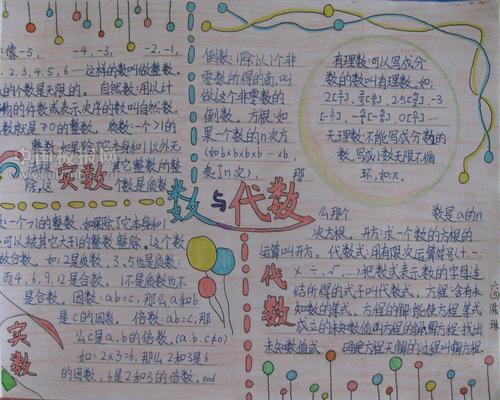 像-5, -4,-3, -2,-1,
2,3,4,5,6……这样的数叫做整数。
的个数是无限的。 自然数:用以计
物的件数或表示次序的数叫自然数。
数就是≥0的整数。质数:一个>1的
整数,如果除了它本身和1以外无
其它整数的整
除,这 个数是质数
实数
是一个>1的整数,如果除了它本身和1
可以被其它大于1的整数整除,这个数
合数。如:2是质数,3,5也是质数,
而4,6,9,12是合数。1不是质数也不
是合数。因数:ab=c,那么a和b
是c的因数。倍数:ab=c,那
么c是a,b的倍数。(a.b.c≠0)
如:2×3=6,那么2和3是6
的因数,6是2和3的倍数。end
实数
倒数:1除以1个非
零数所得的商,叫
做这个非零数的
倒数。方根:如
果一个数的n次方
(如b×b×b×b…×b,
乘了n次), 那
数与代数
有理数:可以写成分
数的数叫有理数。如:
无理数:不能写成分数的
数,写成小数无限不循
环,如:π。
么那个 数是a的n
次方根。开方:求一个数的方根的
运算叫开方。代数式:用有限次运算符号(+.-.
×.÷.√……)把数或表示数的字母连
结所得的式子叫代数式。方程:含有未
知数的等式。方程的解:能使方程等式
成立的未知数值叫方程的解。解方程:找出
未知数值或 确定方程无解的过程叫解方程
代数